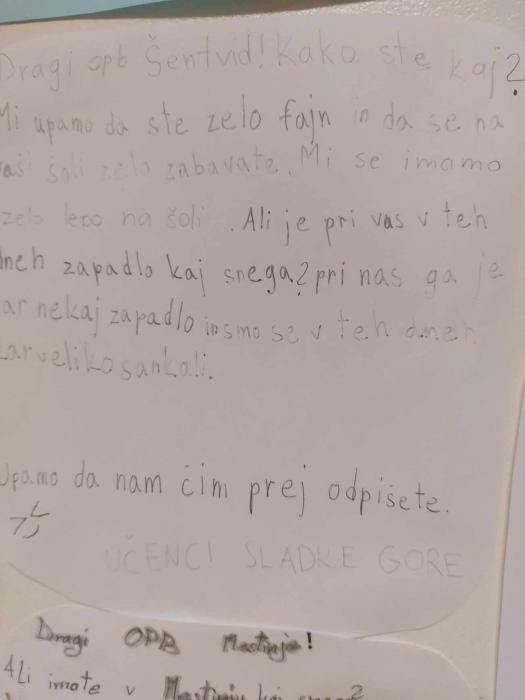 Dragi opb Šentvid! Kako ste kaj?
Mi upamo da ste zelo fajn in da se na
vaši šoli zelo zabavate. Mi se imamo
zelo lepo na šoli . Ali je pri vas v teh
dneh zapadlo kaj snega? pri nas ga je
kar nekaj zapadlo in smo se v teh dneh
kar veliko sankali.
Upamo da nam čim prej odpišete.
UČENCI SLADKE GORE
Dragi OPB Mestinje!
Ali imate v Mestinju kaj snega?